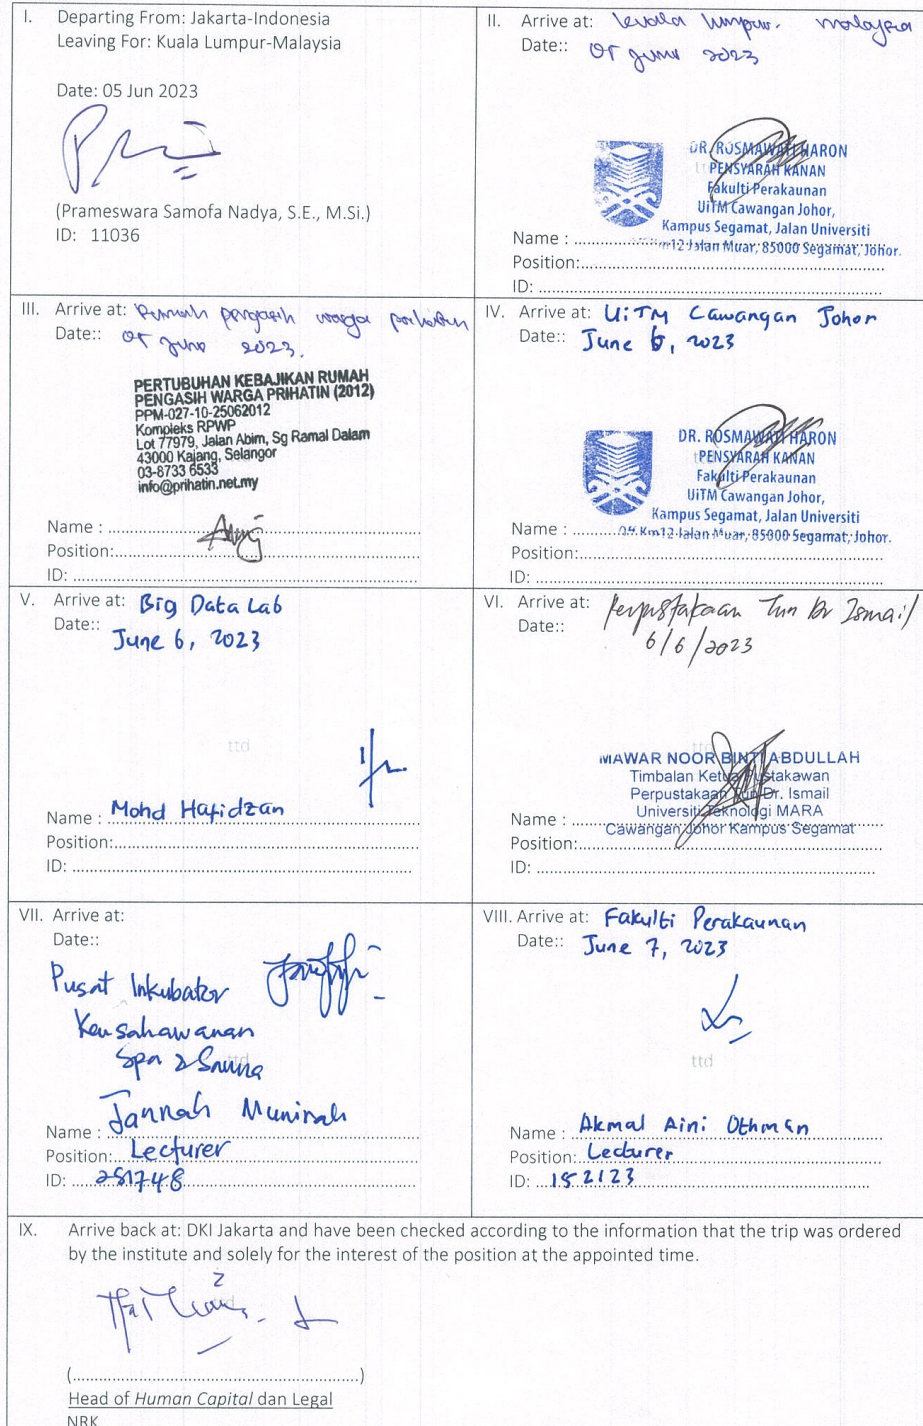 I. Departing From: Jakarta-Indonesia
Leaving For: Kuala Lumpur-Malaysia
Date: 05 Jun 2023
(Prameswara Samofa Nadya, S.E., M.Si.)
ID: 11036
II. Arrive at: kuala lumpur. malaysia
Date:: 05 June 2023
DR. ROSMAWATI HARON
PENSYARAH KANAN
Fakulti Perakaunan
UiTM Cawangan Johor,
Kampus Segamat, Jalan Universiti
Km12 Jalan Muar, 85000 Segamat, Johor.
Name :
Position:
ID:
III. Arrive at: Rumah pengasih warga prihatin
Date:: 05 June 2023.
PERTUBUHAN KEBAJIKAN RUMAH
PENGASIH WARGA PRIHATIN (2012)
PPM-027-10-25062012
Kompleks RPWP
Lot 77979, Jalan Abim, Sg Ramal Dalam
43000 Kajang, Selangor
03-8733 6533
info@prihatin.net.my
Name :
Position:
ID:
IV. Arrive at: UiTM Cawangan Johor
Date:: June 6, 2023
DR. ROSMAWATI HARON
PENSYARAH KANAN
Fakulti Perakaunan
UiTM Cawangan Johor,
Kampus Segamat, Jalan Universiti
Off. Km12 Jalan Muar, 85000 Segamat, Johor.
Name :
Position:
ID:
V. Arrive at: Big Data Lab
Date:: June 6, 2023
ttd
Name : Mohd Hafidzan
Position:
ID:
VI. Arrive at: Perpustakaan Tun Dr Ismail
Date:: 6/6/2023
MAWAR NOOR BINTI ABDULLAH
Timbalan Ketua Pustakawan
Perpustakaan Tun Dr. Ismail
Universiti Teknologi MARA
Cawangan Johor Kampus Segamat
Name :
Position:
ID:
VII. Arrive at:
Date::
Pusat Inkubator
Keusahawanan
Spa & Sauna
ttd
Name : Jannah Munirah
Position: Lecturer
ID: 281748
VIII. Arrive at: Fakulti Perakaunan
Date:: June 7, 2023
ttd
Name : Akmal Aini Othman
Position: Lecturer
ID: 152123
IX. Arrive back at: DKI Jakarta and have been checked according to the information that the trip was ordered
by the institute and solely for the interest of the position at the appointed time.
ttd
(....................)
Head of Human Capital dan Legal
NRK